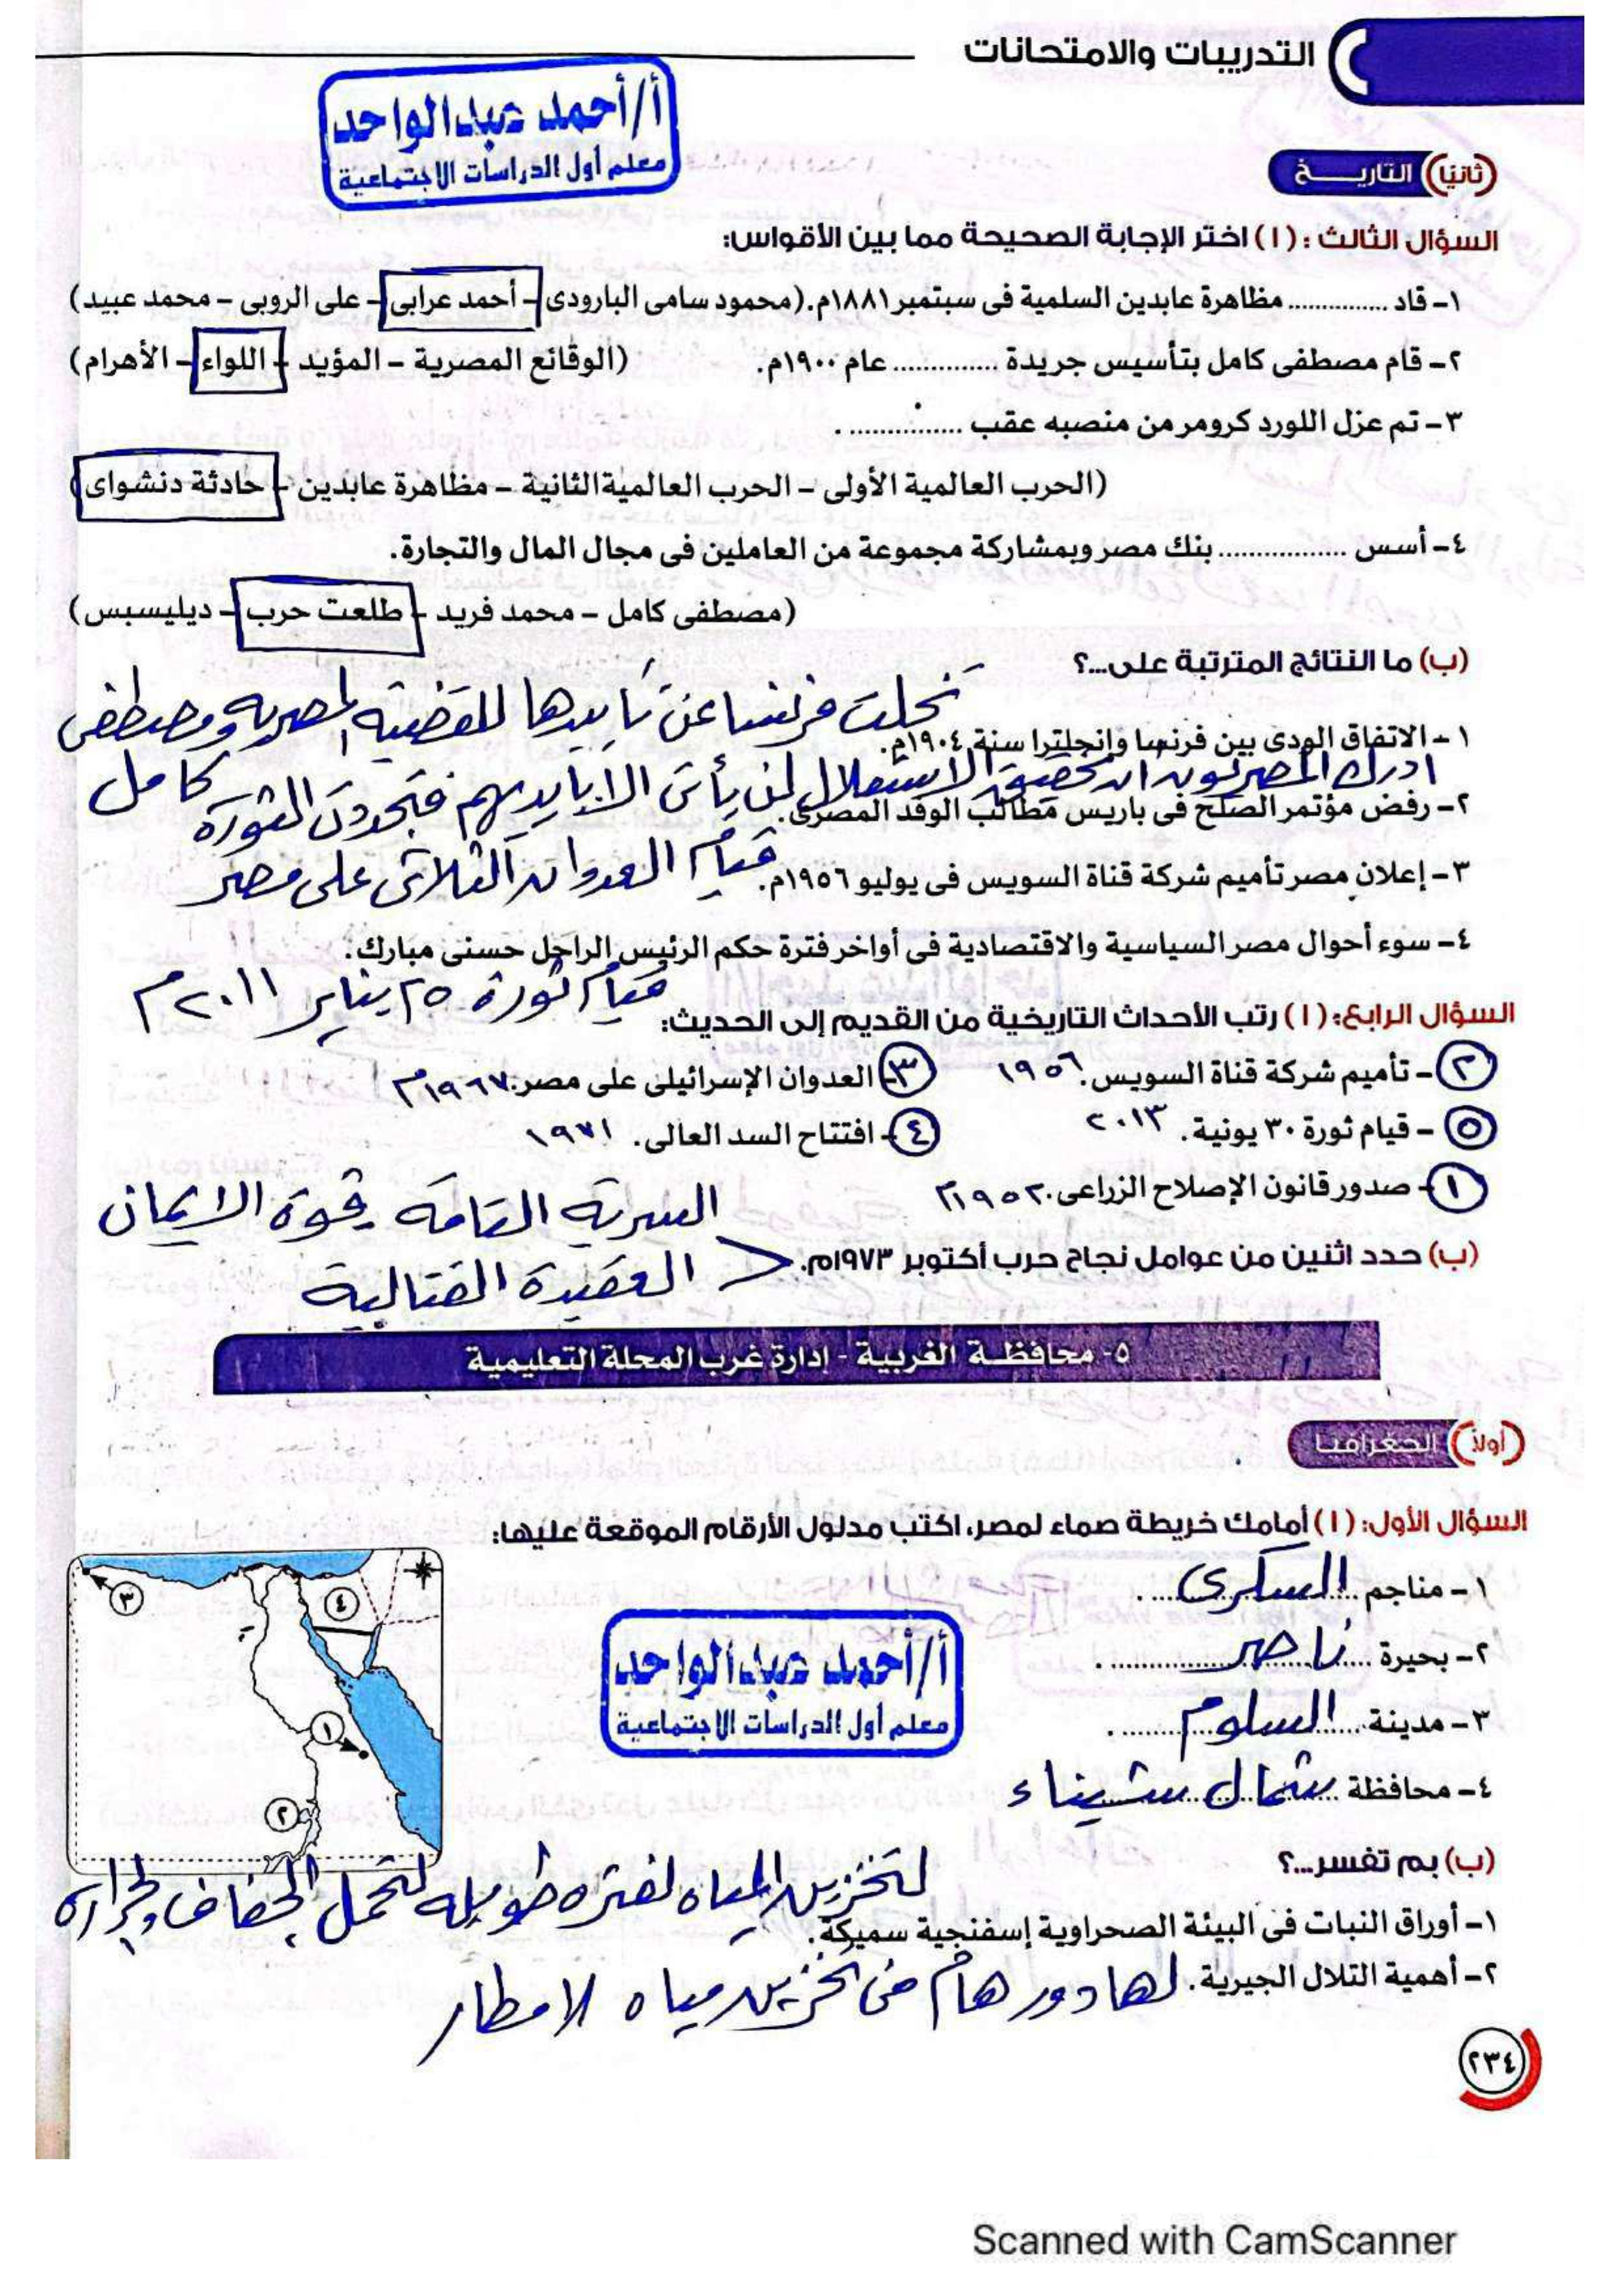 التدريبات والامتحانات
أ/أحمد عبدالواحد
معلم أول الدراسات الاجتماعية
(ثانيًا) التاريخ
السؤال الثالث : (١) اختر الإجابة الصحيحة مما بين الأقواس:
١- قاد .............. مظاهرة عابدين السلمية فى سبتمبر ١٨٨١م. (محمود سامى البارودى - أحمد عرابى - على الروبى - محمد عبيد)
٢- قام مصطفى كامل بتأسيس جريدة .............. عام ١٩٠٠م. (الوقائع المصرية - المؤيد - اللواء - الأهرام)
٣- تم عزل اللورد كرومر من منصبه عقب .............. .
(الحرب العالمية الأولى - الحرب العالمية الثانية - مظاهرة عابدين - حادثة دنشواى)
٤- أسس ................ بنك مصر وبمشاركة مجموعة من العاملين فى مجال المال والتجارة.
(مصطفى كامل - محمد فريد - طلعت حرب - ديليسبس)
(ب) ما النتائج المترتبة على...؟
تخلت فرنسا عن تأييدها للقضية المصرية ومصطفى كامل
١- الاتفاق الودى بين فرنسا وإنجلترا سنة ١٩٠٤م.
ادرك المصريون ان تحقيق الاستقلال لن يأتى الا بايديهم فتجددت الثورة
٢- رفض مؤتمر الصلح فى باريس مطالب الوفد المصرى.
٣- إعلان مصر تأميم شركة قناة السويس فى يوليو ١٩٥٦م. قيام العدوان الثلاثى على مصر
٤- سوء أحوال مصر السياسية والاقتصادية فى أواخر فترة حكم الرئيس الراحل حسنى مبارك.
قيام ثورة ٢٥ يناير ٢٠١١م
السؤال الرابع: (١) رتب الأحداث التاريخية من القديم إلى الحديث:
(٢) - تأميم شركة قناة السويس. ١٩٥٦ (٣) - العدوان الإسرائيلى على مصر. ١٩٦٧م
(٥) - قيام ثورة ٣٠ يونية. ٢٠١٣ (٤) - افتتاح السد العالى. ١٩٧١
(١) - صدور قانون الإصلاح الزراعى. ١٩٥٢م
السرية التامة وقوة الايمان
(ب) حدد اثنين من عوامل نجاح حرب أكتوبر ١٩٧٣م.
العقيدة القتالية
٥- محافظة الغربية - إدارة غرب المحلة التعليمية
(أولاً) الجغرافيا
السؤال الأول: (١) أمامك خريطة صماء لمصر، اكتب مدلول الأرقام الموقعة عليها:
١- مناجم السكرى
٢- بحيرة ناصر
٣- مدينة السلوم
٤- محافظة شمال سيناء
٣
٤
١
٢
أ/أحمد عبدالواحد
معلم أول الدراسات الاجتماعية
(ب) بم تفسر...؟
لتخزين المياه لفتره طويله لتحمل الجفاف والحراره
١- أوراق النبات فى البيئة الصحراوية إسفنجية سميكة.
٢- أهمية التلال الجيرية. لها دور هام فى تخزين مياه الامطار
٢٣٤
Scanned with CamScanner